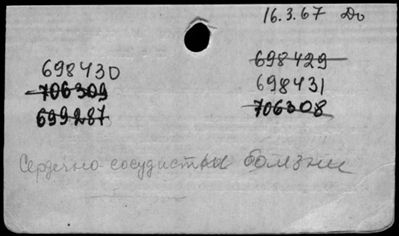 16.3.67 До
698430
706309
699287
698429
698431
706308
Сердечно-сосудистые болезни